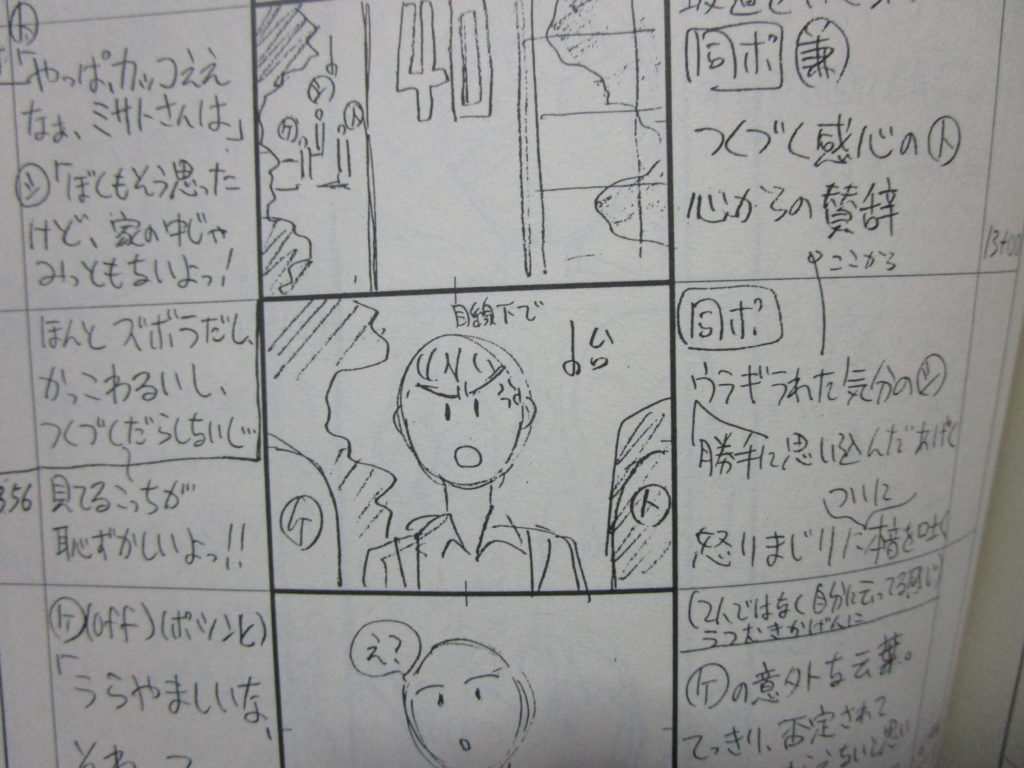 ト
「やっぱ、カッコええ
なぁ、ミサトさんは」
シ「ぼくもそう思った
けど、家の中じゃ
みっともないよっ!
シ
ケ
ト
同ポ 兼
つくづく感心のト
心からの賛辞
ここから
13+0
ほんと ズボラだし、
かっこわるいし、
つくづくだらしないし、
356
見てるこっちが
恥ずかしいよっ!!
目線下で
ケ
ト
同ポ
ウラギラれた気分のシ
勝手に思い込んだあげく
ついに
怒りまじりに本音を吐く
ケ(off)(ポツンと)
「うらやましいな、
え?
(2人ではなく自分に云ってる感じ)
うつむきかげんに
ケの意外な言葉。
てっきり、否定されて